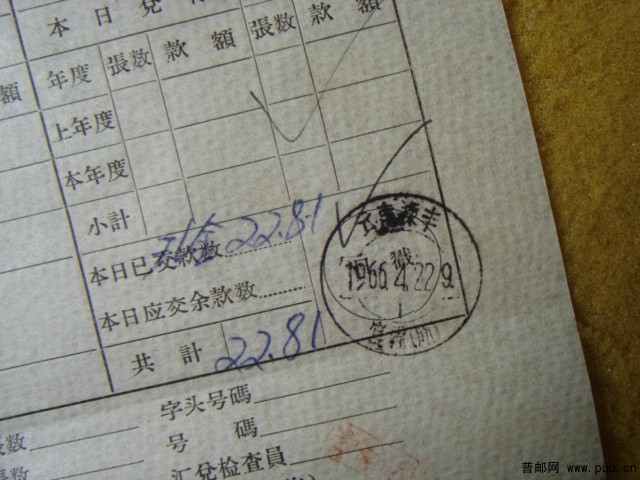 本日兌
額 年度 張数 款額 張数 款額
上年度
本年度
小計
22.81
本日已交款数
本日应交余款数
共計 22.81
1966.4.22.9
字头号碼
張数 号碼
張数 汇兌检查員
普邮网 www.puu.cn